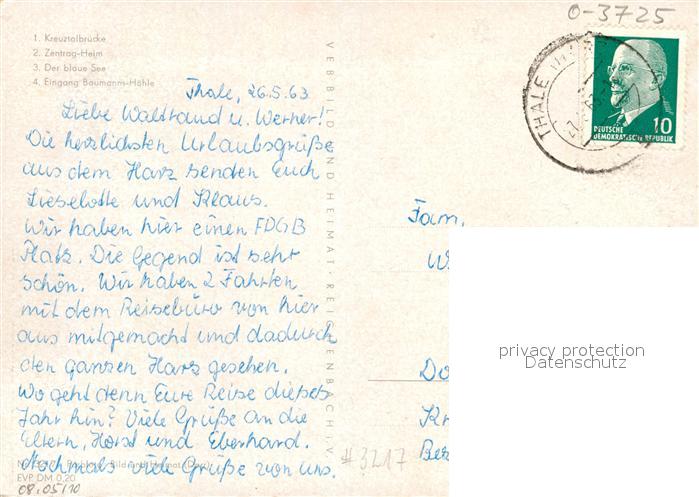 0-3725
1. Kreuztalbrücke
2. Zentrag-Heim
3. Der blaue See
4. Eingang Baumanns-Höhle
Thale, 26.5.63
Liebe Waltraud u. Werner!
Die herzlichsten Urlaubsgrüße
aus dem Harz senden Euch
Lieselotte und Klaus.
Wir haben hier einen FDGB
Platz. Die Gegend ist sehr
schön. Wir haben 2 Fahrten
mit dem Reisebüro von hier
aus mitgemacht und dadurch
den ganzen Harz gesehen.
Wo geht denn Eure Reise dieses
Jahr hin? Viele Grüße an die
Eltern, Horst und Eberhard.
Nochmals viele Grüße von uns.
EVP DM 0,20
08.05/10
VEB BILD UND HEIMAT · REICHENBACH I. V.
THALE
DEUTSCHE 10
DEMOKRATISCHE REPUBLIK
Fam.
W
Do
Kr
Bez
#3217
privacy protection
Datenschutz